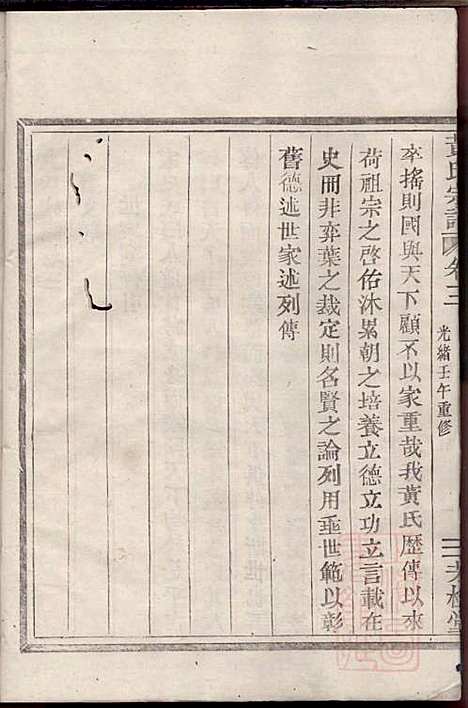 黃氏宗譜 卷三 光緒壬午重修 二
卒搖則國與天下顧不以家重哉我黃氏歷傳以來
荷祖宗之啓佑沐累朝之培養立德立功立言載在
史冊非弈葉之裁定則名賢之論列用垂世範以彰
舊德述世家述列傳